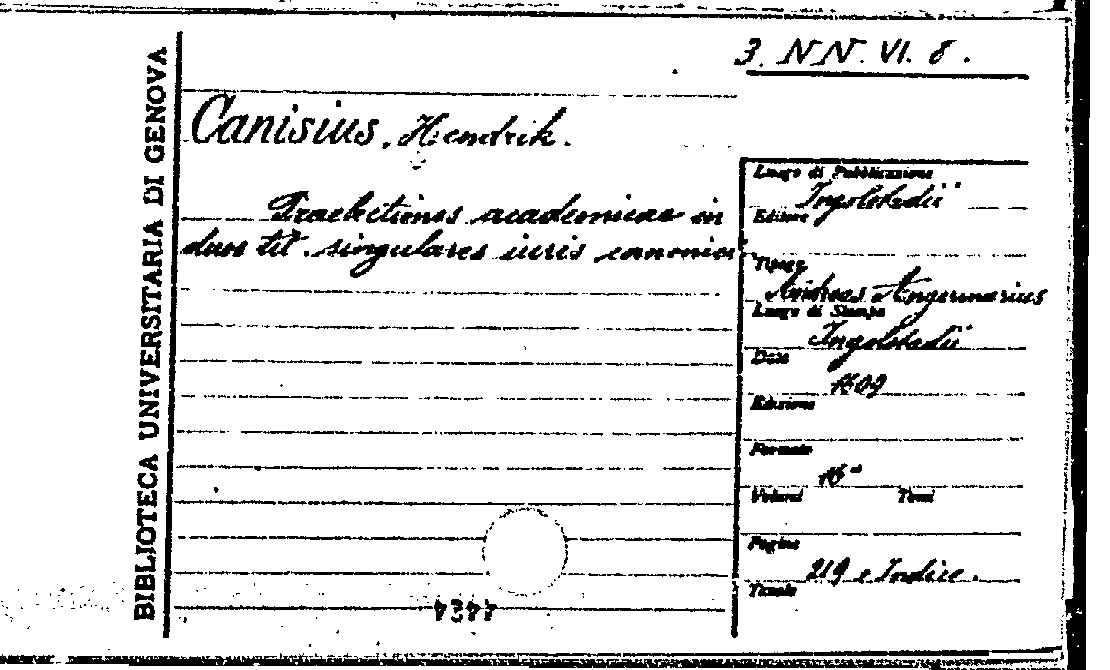 3. NN. VI. 8.
BIBLIOTECA UNIVERSITARIA DI GENOVA
Canisius, Hendrik.
Praelectiones academicae in
duos tit. singulares iuris canonici
Luogo di Pubblicazione
Ingolstadii
Editore
Tipogr.
Andreas Angermarius
Luogo di Stampa
Ingolstadii
Data
1609
Edizione
Formato
16°
Volumi Tomi
Pagine
219 e Indice.
Tavole